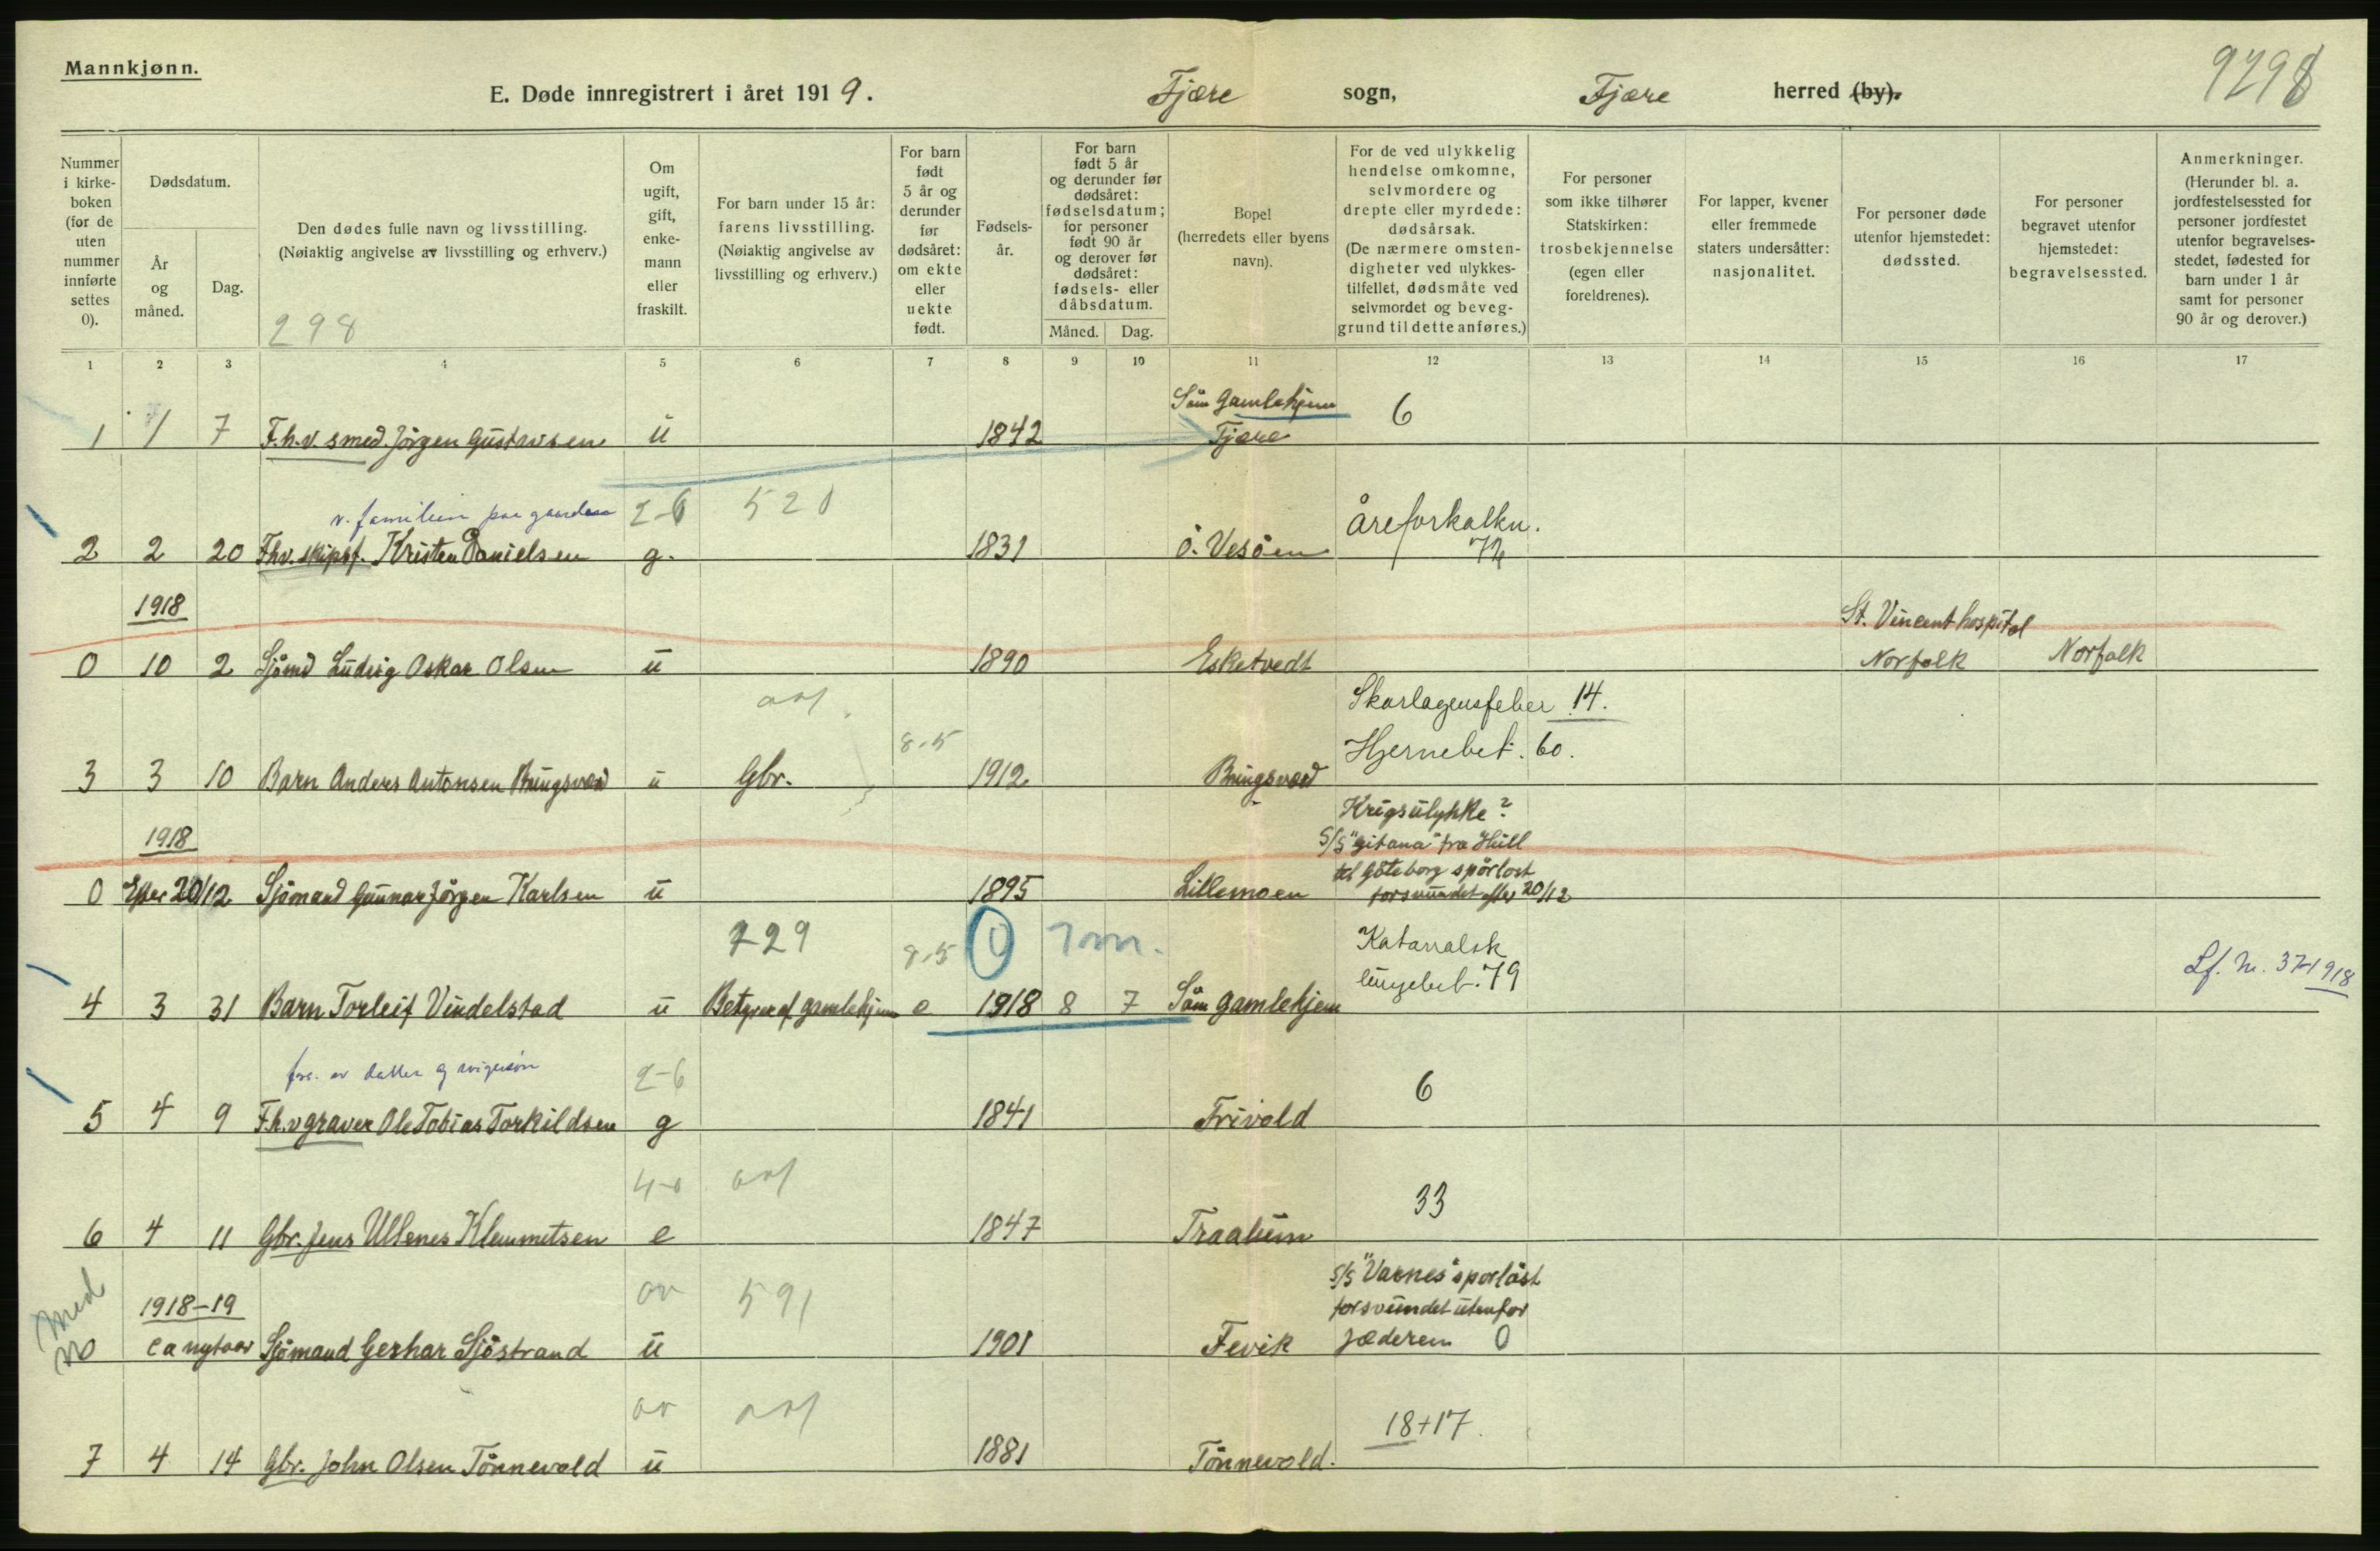 Mannkjønn.
E. Døde innregistrert i året 1919. Fjære sogn, Fjære herred (by).
9298
Nummer i kirke- boken (for de uten nummer innførte settes 0).
Dødsdatum.
År og måned.
Dag.
Den dødes fulle navn og livsstilling.
(Nøiaktig angivelse av livsstilling og erhverv.)
298
Om ugift, gift, enke- mann eller fraskilt.
For barn under 15 år: farens livsstilling. (Nøiaktig angivelse av livsstilling og erhverv.)
For barn født 5 år og derunder før dødsåret: om ekte eller uekte født.
Fødsels- år.
For barn født 5 år og derunder før dødsåret: fødselsdatum; for personer født 90 år og derover før dødsåret: fødsels- eller dåbsdatum.
Måned. Dag.
Bopel (herredets eller byens navn).
For de ved ulykkelig hendelse omkomne, selvmordere og drepte eller myrdede: dødsårsak. (De nærmere omsten- digheter ved ulykkes- tilfellet, dødsmåte ved selvmordet og beveg- grund til dette anføres.)
For personer som ikke tilhører Statskirken: trosbekjennelse (egen eller foreldrenes).
For lapper, kvener eller fremmede staters undersåtter: nasjonalitet.
For personer døde utenfor hjemstedet: dødssted.
For personer begravet utenfor hjemstedet: begravelsessted.
Anmerkninger. (Herunder bl. a. jordfestelsessted for personer jordfestet utenfor begravelses- stedet, fødested for barn under 1 år samt for personer 90 år og derover.)
1 2 3 4 5 6 7 8 9 10 11 12 13 14 15 16 17
Söm Gamlehjem 6
1 1 7 F.h.v. smed. Jörgen Gustavsen u 1842 Fjære
v. familien paa gaarden 2-6 520 Åreforkalkn.
2 2 20 Fhv. skipsf. Kristen Danielsen g. 1831 Ö. Vesöen 72
1918 St. Vincent hospital
0 10 2 Sjömd Ludvig Oskar Olsen u 1890 Esketvedt Norfolk Norfolk
Skarlagensfeber 14.
8-5 Hjernebet. 60.
3 3 10 Barn Anders Antonsen Bringsværd u Gbr. 1912 Bringsværd
1918 Krigsulykke?
S/S "Gitana" fra Hull
til Göteborg sporlöst
0 Efter 20/12 Sjömand Gunnar Jörgen Karlsen u 1895 Lillemoen forsvundet efter 20/12
729 8-5 0 7 mn. Katarralsk
lungebet. 79 Lf. Nr. 37-1918
4 3 31 Barn Torleif Vindelstad u Bestyrer af gamlehjem e 1918 8 7 Söm Gamlehjem
fors. av datter og svigersön 2-6 6
5 4 9 F.h.v graver Ole Tobias Torkildsen g 1841 Frivold
4-0 33
6 4 11 Gbr. Jens Ullenes Klemmetsen e 1847 Traalum
med 1918-19 591 S/S "Varnes" sporlöst
forsvundet utenfor
no ca nytaar Sjömand Gerhar Sjöstrand u 1901 Fevik Jæderen 0
18+17.
7 4 14 Gbr. John Olsen Tönnevold u 1881 Tönnevold.